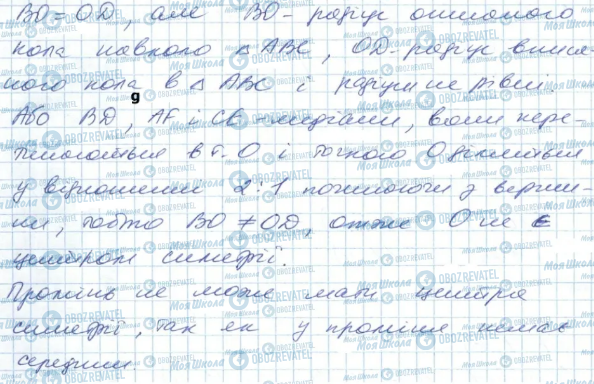 BO = OD, але BO - радіус описаного
кола навколо △ ABC, OD - радіус вписа-
ного кола в △ ABC і радіуси не рівні.
Або BD, AF і CE - медіани, вони пере-
тинаються в т. O і точкою O діляться
у відношенні 2:1 починаючи з верши-
ни, тобто BO ≠ OD, отже O не є
центром симетрії.
Промінь не може мати центра
симетрії, так як у променя немає
середини.